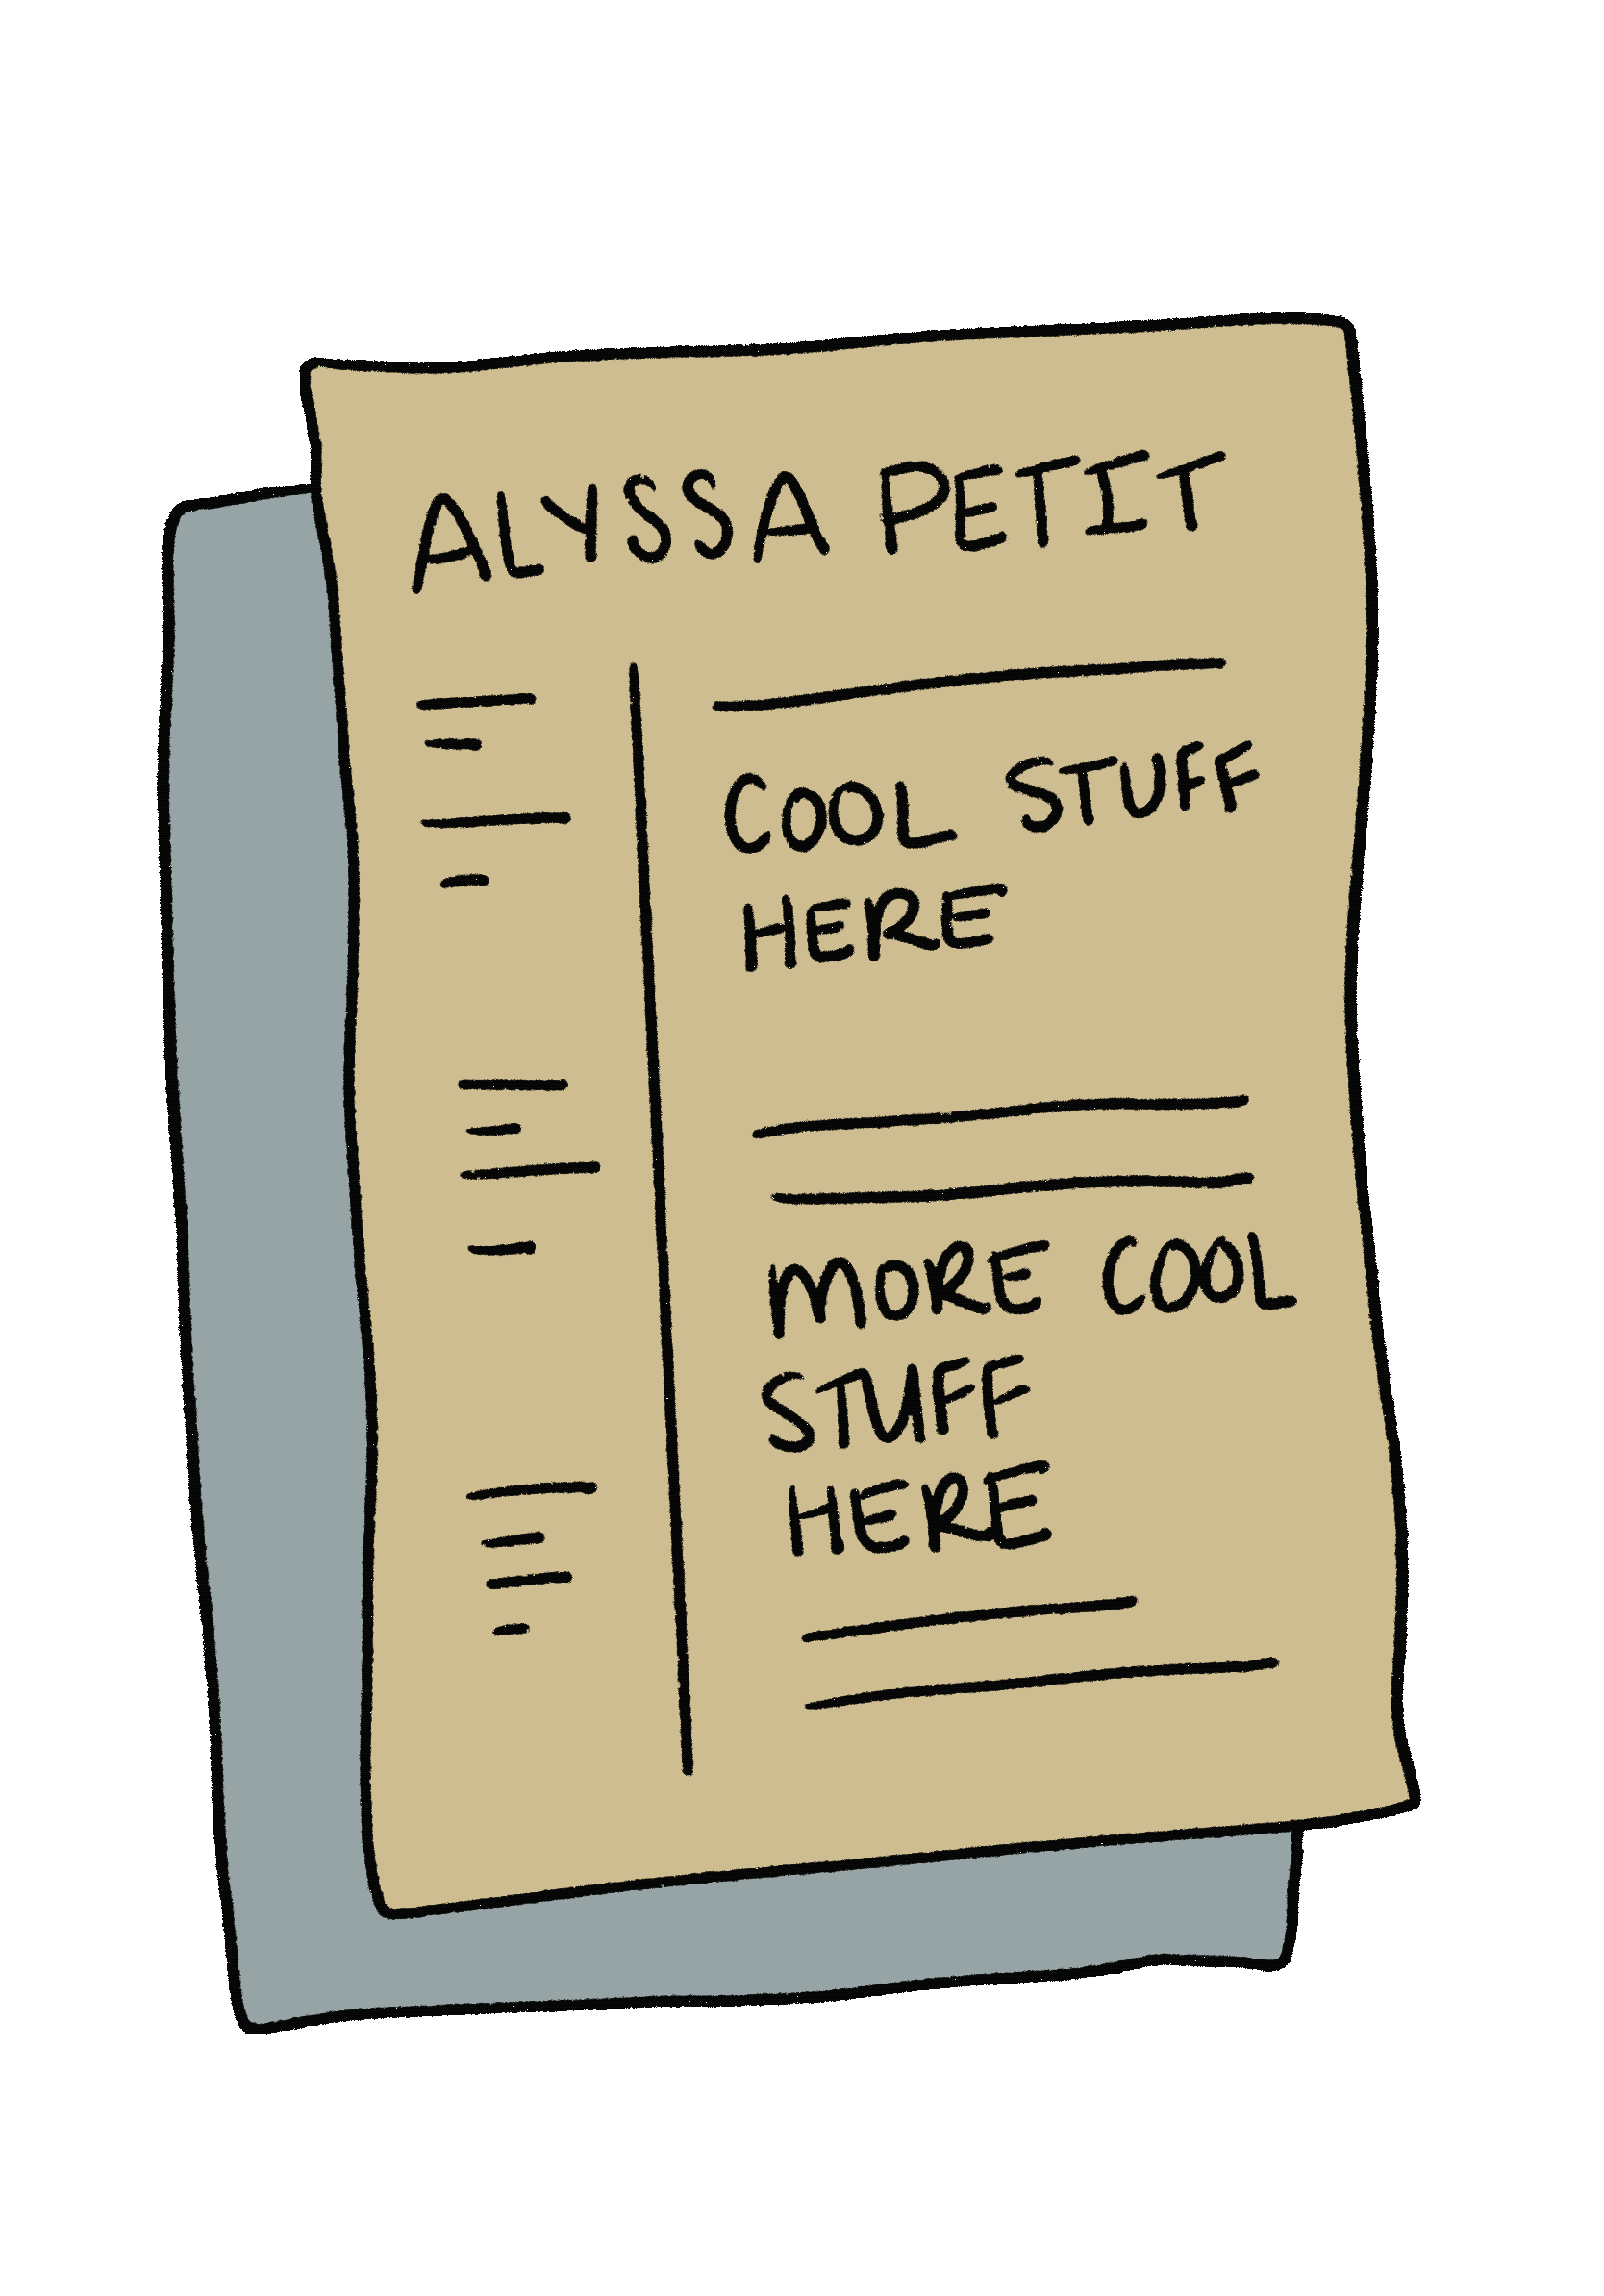 ALYSSA PETIT
COOL STUFF
HERE
MORE COOL
STUFF
HERE